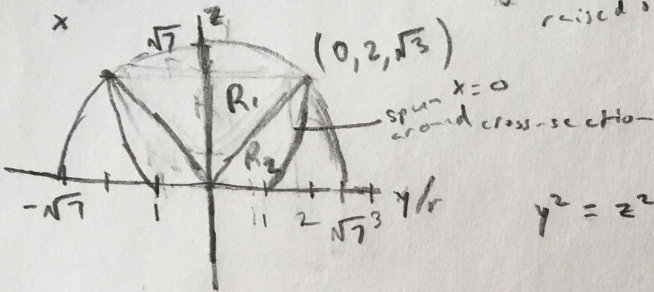 x
z
raised
√7
(0, 2, √3)
R₁
x=0
spun
around cross-sectio
R₂
-√7
1
1
2
√7
3
y/r
y² = z²